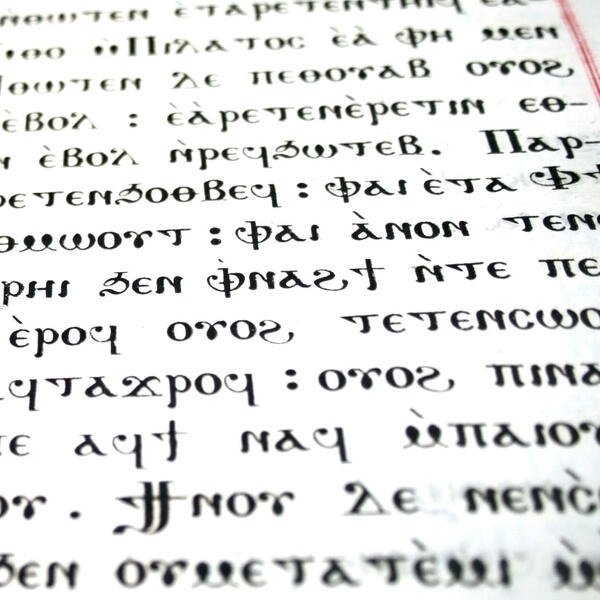 ⲛ̀ⲑⲱⲧⲉⲛ ⲉ̀ⲧⲁⲣⲉⲧⲉⲛⲧⲏⲓϥ ⲉ̀ⲁ-
ⲙ̀ⲑⲟ ⲙ̀Ⲡⲓⲗⲁⲧⲟⲥ ⲉ̀ⲁ̀ ⲫⲏ ⲙⲉⲛ
ⲛ̀ⲑⲱⲧⲉⲛ ⲇⲉ ⲡⲉⲑⲟⲩⲁⲃ ⲟⲩⲟϩ
ⲉ̀ⲃⲟⲗ : ⲉ̀ⲁ̀ⲣⲉⲧⲉⲛⲉ̀ⲣⲉⲧⲓⲛ ⲉⲑ-
ⲛ ⲉ̀ⲃⲟⲗ ⲛ̀ⲣⲉϥϧⲱⲧⲉⲃ. Ⲡⲁⲣ-
ⲣⲉⲧⲉⲛϧⲟⲑⲃⲉϥ : ⲫⲁⲓ ⲉ̀ⲧⲁ Ⲫϯ
ⲑⲙⲱⲟⲩⲧ : ⲫⲁⲓ ⲁ̀ⲛⲟⲛ ⲧⲉⲛ
ⲣⲏⲓ ϧⲉⲛ ⲫ̀ⲛⲁϩϯ ⲛ̀ⲧⲉ ⲡⲉ
ⲉ̀ⲣⲟϥ ⲟⲩⲟϩ ⲧⲉⲧⲉⲛⲥⲱⲟ
ⲁϥⲧⲁϫⲣⲟϥ : ⲟⲩⲟϩ ⲡⲓⲛⲁ
ⲧⲉ ⲁϥϯ ⲛⲁϥ ⲙ̀ⲡⲁⲓⲟⲩ
ⲟⲩ. Ϯⲛⲟⲩ ⲇⲉ ⲛⲉⲛⲥ̀
ϧⲉⲛ ⲟⲩⲙⲉⲧⲁⲧⲉ̀ⲙⲓ ⲙ̀